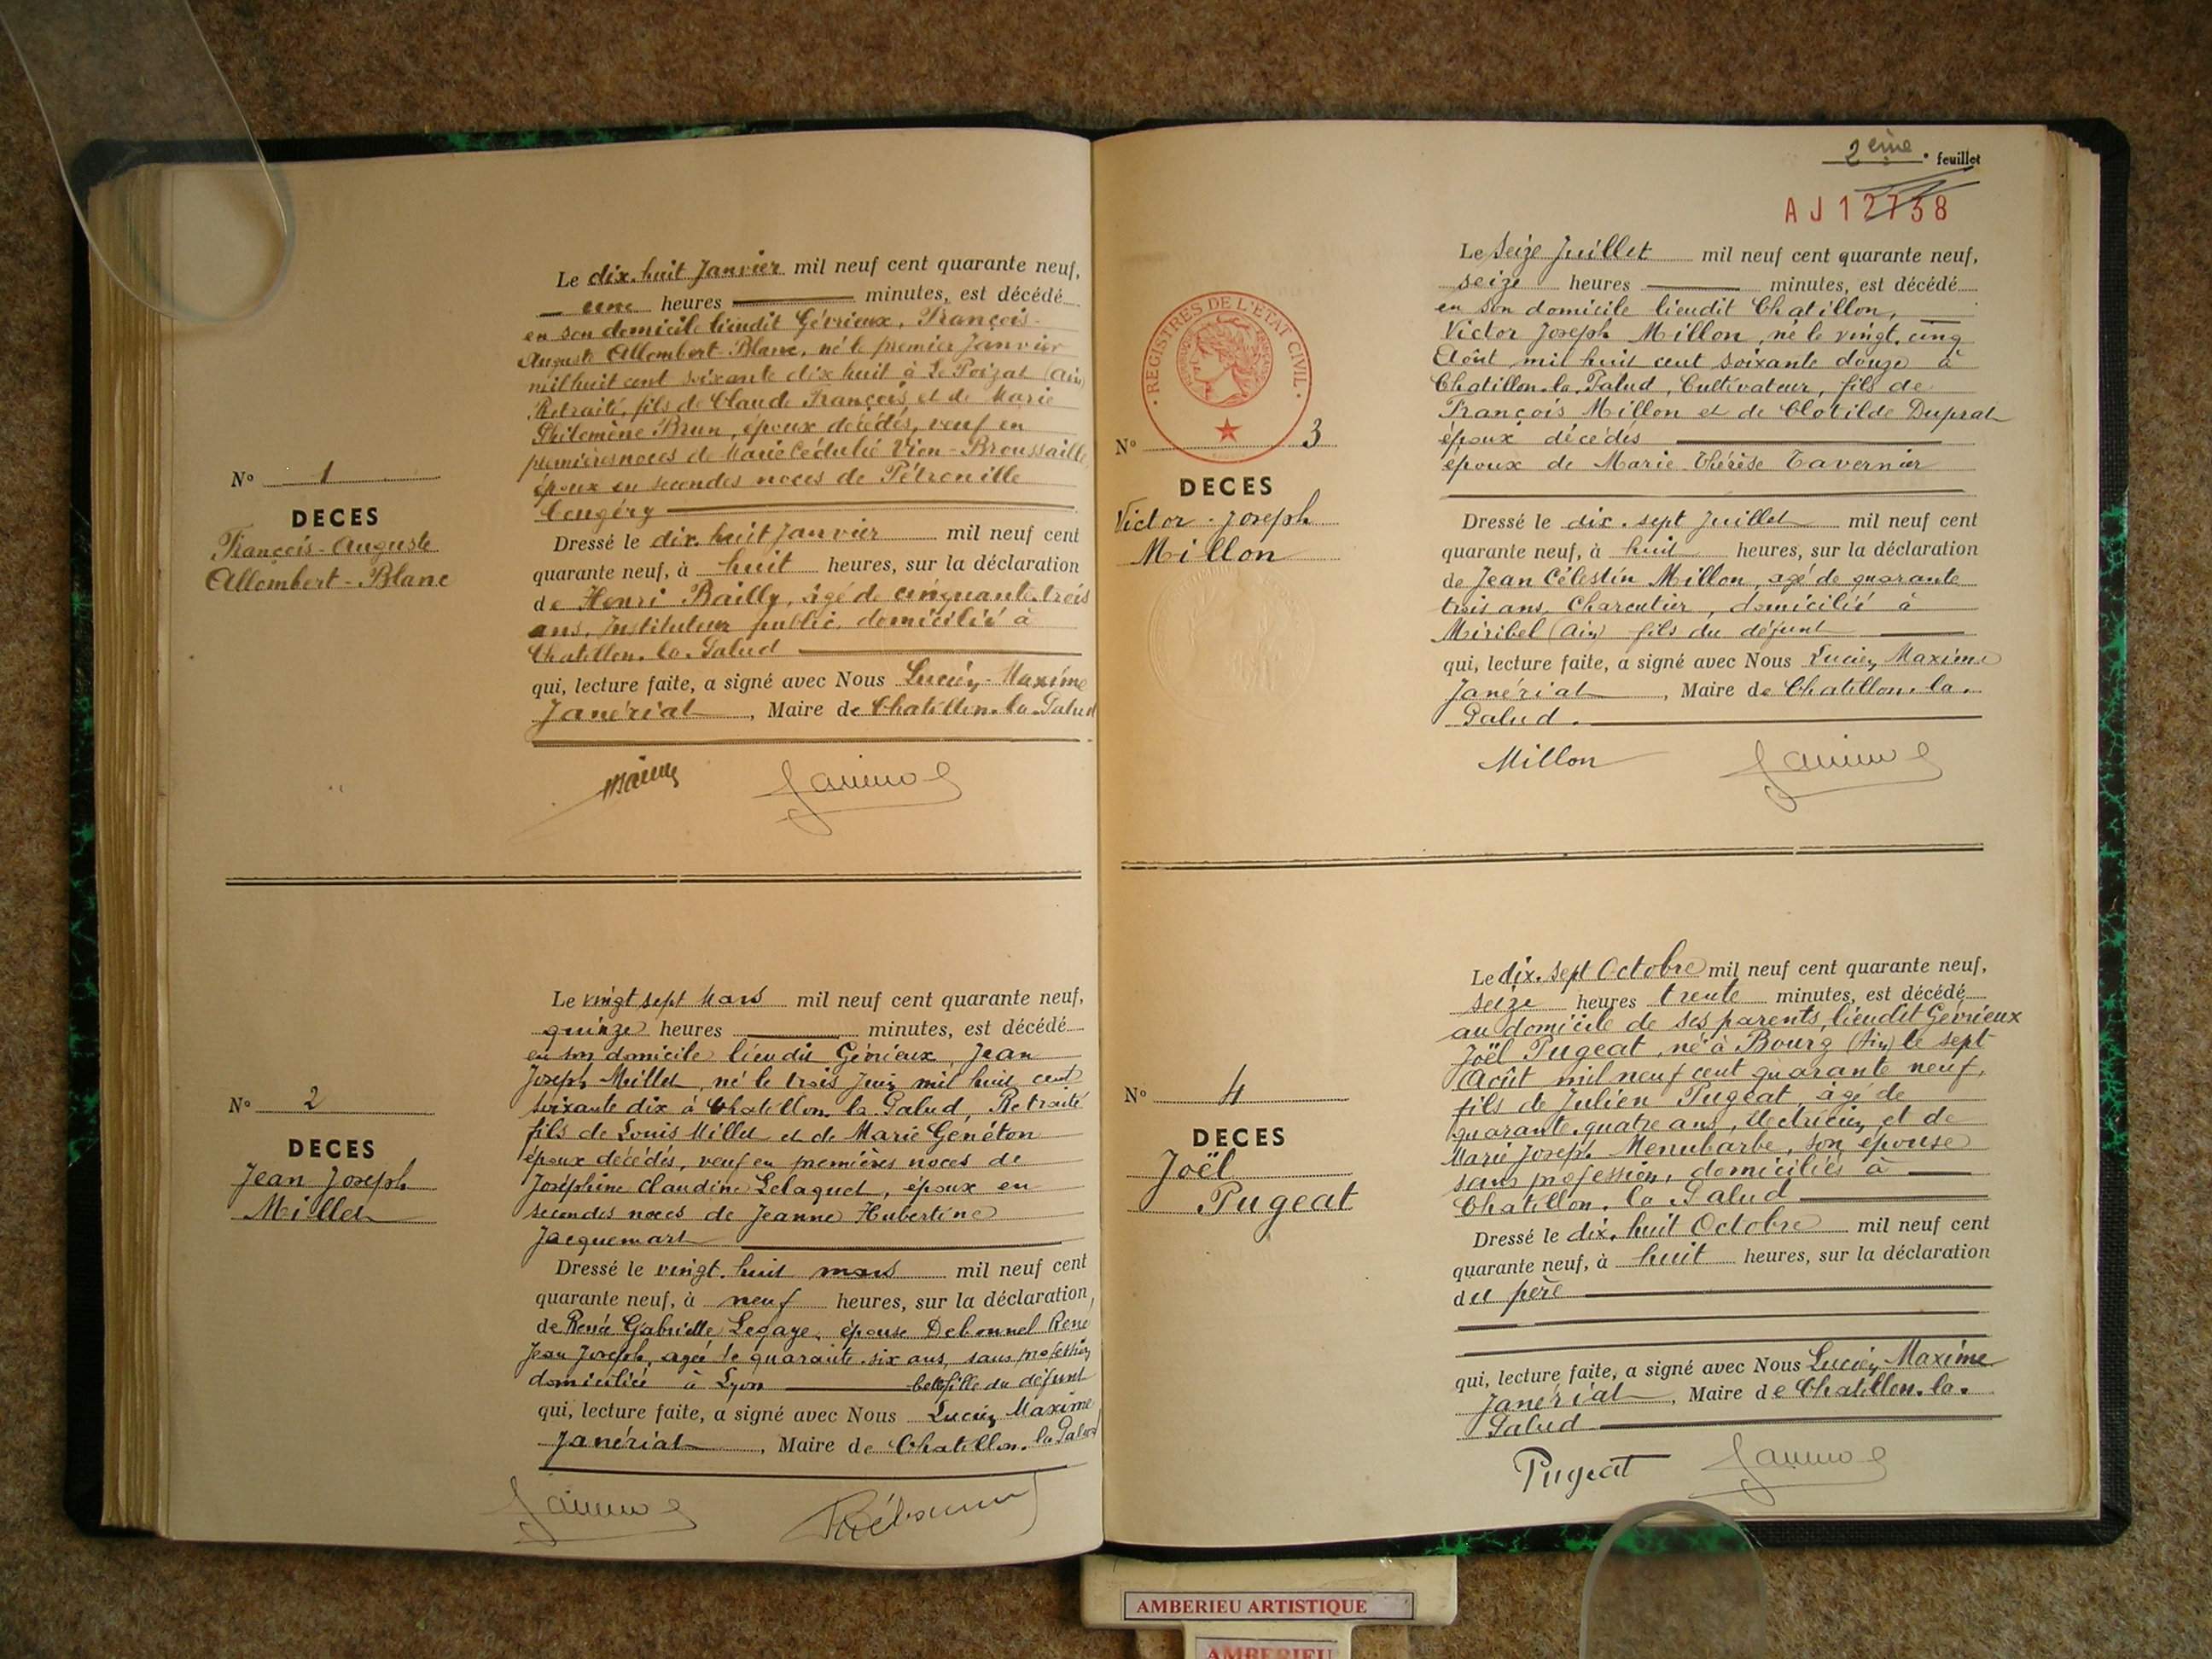 Le dix. huit Janvier mil neuf cent quarante neuf,
une heures minutes, est décédé
en son domicile lieudit Gévrieux, François-
Auguste Allombert-Blanc, né le premier Janvier
mil huit cent soixante dix huit à Le Poizat (Ain)
Retraité, fils de Claude François et de Marie
Philomène Brun, époux décédés, veuf en
premières noces de Marie Cédulie Vion-Broussaille
époux en secondes noces de Pétronille
Cougéry
N° 1
DECES
François-Auguste
Allombert-Blanc
Dressé le dix. huit Janvier mil neuf cent
quarante neuf, à huit heures, sur la déclaration
de Henri Bailly, âgé de cinquante. trois
ans, Instituteur public, domicilié à
Chatillon. la. Palud
qui, lecture faite, a signé avec Nous Lucien-Maxime
Janériat, Maire de Chatillon. la. Palud
Le vingt sept Mars mil neuf cent quarante neuf,
quinze heures minutes, est décédé
en son domicile lieudit Gévrieux, Jean
Joseph Millet, né le trois Juin mil huit cent
soixante dix à Chatillon. la Palud, Retraité
fils de Louis Millet et de Marie Généton
époux décédés, veuf en premières noces de
Joséphine Claudine Lelaquet, époux en
secondes noces de Jeanne Hubertine
Jacquemart
N° 2
DECES
Jean Joseph
Millet
Dressé le vingt. huit mars mil neuf cent
quarante neuf, à neuf heures, sur la déclaration
de Renée Gabrielle Legaye, épouse Debonnel René
Jean Joseph, agée de quarante. six ans, sans profession
domiciliée à Lyon bellefille du défunt
qui, lecture faite, a signé avec Nous Lucien Maxime
Janériat, Maire de Chatillon. la Palud
2ème feuillet
AJ 12738
Le Seize Juillet mil neuf cent quarante neuf,
seize heures minutes, est décédé
en son domicile lieudit Chatillon,
Victor Joseph Millon, né le vingt. cinq
Août mil huit cent soixante douze à
Chatillon. la. Palud, Cultivateur, fils de
François Millon et de Clotilde Duprat
époux décédés
époux de Marie. Thérèse Tavernier
REGISTRES DE L'ÉTAT CIVIL
N° 3
DECES
Victor. Joseph
Millon
Dressé le dix. sept Juillet mil neuf cent
quarante neuf, à huit heures, sur la déclaration
de Jean Célestin Millon, agé de quarante
trois ans, Charcutier, domicilié à
Miribel (Ain) fils du défunt
qui, lecture faite, a signé avec Nous Lucien Maxime
Janériat, Maire de Chatillon. la.
Palud.
Millon
Le dix. sept Octobre mil neuf cent quarante neuf,
seize heures trente minutes, est décédé
au domicile de ses parents, lieudit Gevrieux
Joël Pugeat, né à Bourg (Ain) le sept
Août mil neuf cent quarante neuf,
fils de Julien Pugeat, agé de
quarante. quatre ans, électricien, et de
Marie Joseph Menubarbe, son épouse
sans profession, domiciliés à
Chatillon. la Palud
N° 4
DECES
Joël
Pugeat
Dressé le dix. huit Octobre mil neuf cent
quarante neuf, à huit heures, sur la déclaration
du père
qui, lecture faite, a signé avec Nous Lucien Maxime
Janériat, Maire de Chatillon. la.
Palud
Pugeat
AMBERIEU ARTISTIQUE
AMBERIEU